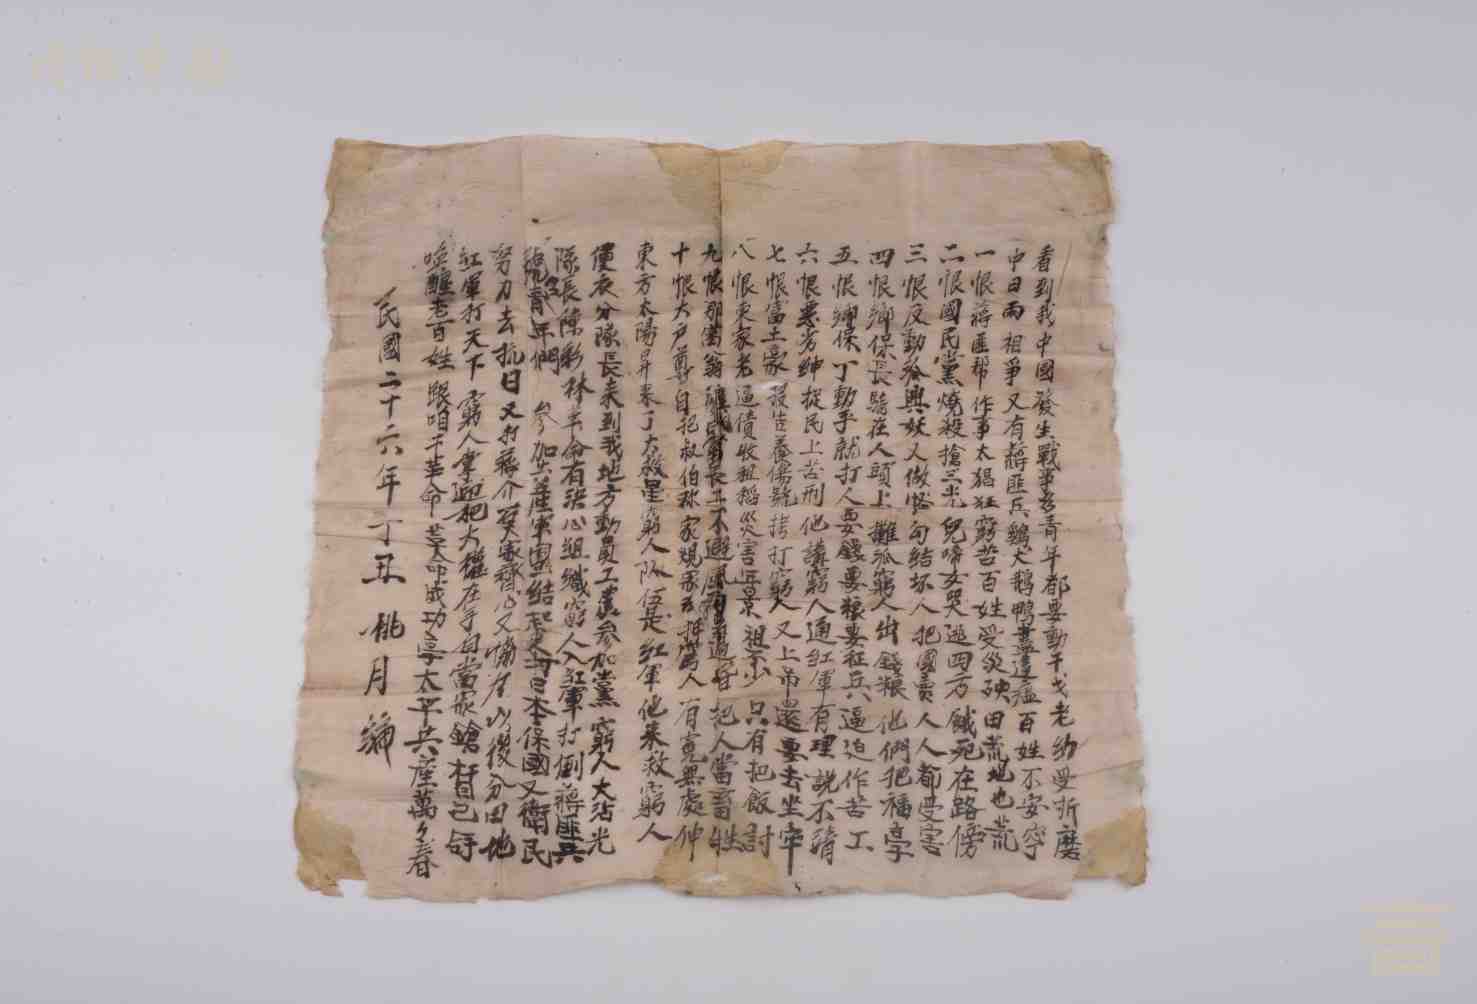 看到我中國發生戰爭老青年都要動干戈老幼受折磨
中日兩相爭又有蔣匪兵鷄犬鵝鴨盡遭瘟百姓不安寧
一恨蔣匪帮作事太猖狂窮苦百姓受災殃田荒地也荒
二恨國民黨燒殺搶三光兒啼女哭逃四方餓死在路傍
三恨反動派興妖又做怪勾結坏人把國賣人人都受害
四恨鄉保長騎在人頭上攤派窮人出錢粮他們把福享
五恨鄉保丁動手就打人要錢要粮要征兵逼迫作苦工
六恨惡劣紳捉民上苦刑他講窮人通紅軍有理說不清
七恨富土豪打窮人又上吊還要去坐牢
八恨東家老逼債收租稻災害年景祖不少只有把飯討
九恨那富翁長工不避風雨把人當畜牲
十恨大户尊自把叔伯称家規窮人有寃無處伸
東方太陽昇來了大救星窮人隊伍是紅軍他来救窮人
便衣分隊長来到我地方動員工農参加黨窮人大沾光
隊長陳彩林革命有决心組織窮人入紅軍打倒蔣匪兵
青年們参加共產軍團結起來打日本保國又衛民
努力去抗日又打蔣介石大家齊心又以後分田地
紅軍打天下窮人掌把大權在手自當家鎗杆自己
喚醒老百姓跟咱干革命革命成功享太平共產萬々春
民國二十六年丁丑桃月編